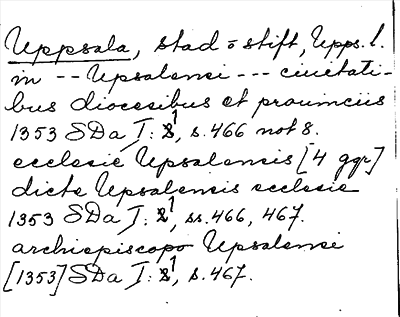 Uppsala, stad o stift, Upps. l.
in -- Upsalensi --- ciuitati-
bus diocesibus et prouinciis
1353 SDa I: 1, s. 466 not 8.
ecclesie Upsalensis [4 ggr]
dicte Upsalensis ecclesie
1353 SDa I: 1, ss. 466, 467.
archiepiscopo Upsalensi
[1353] SDa I: 1, s. 467.